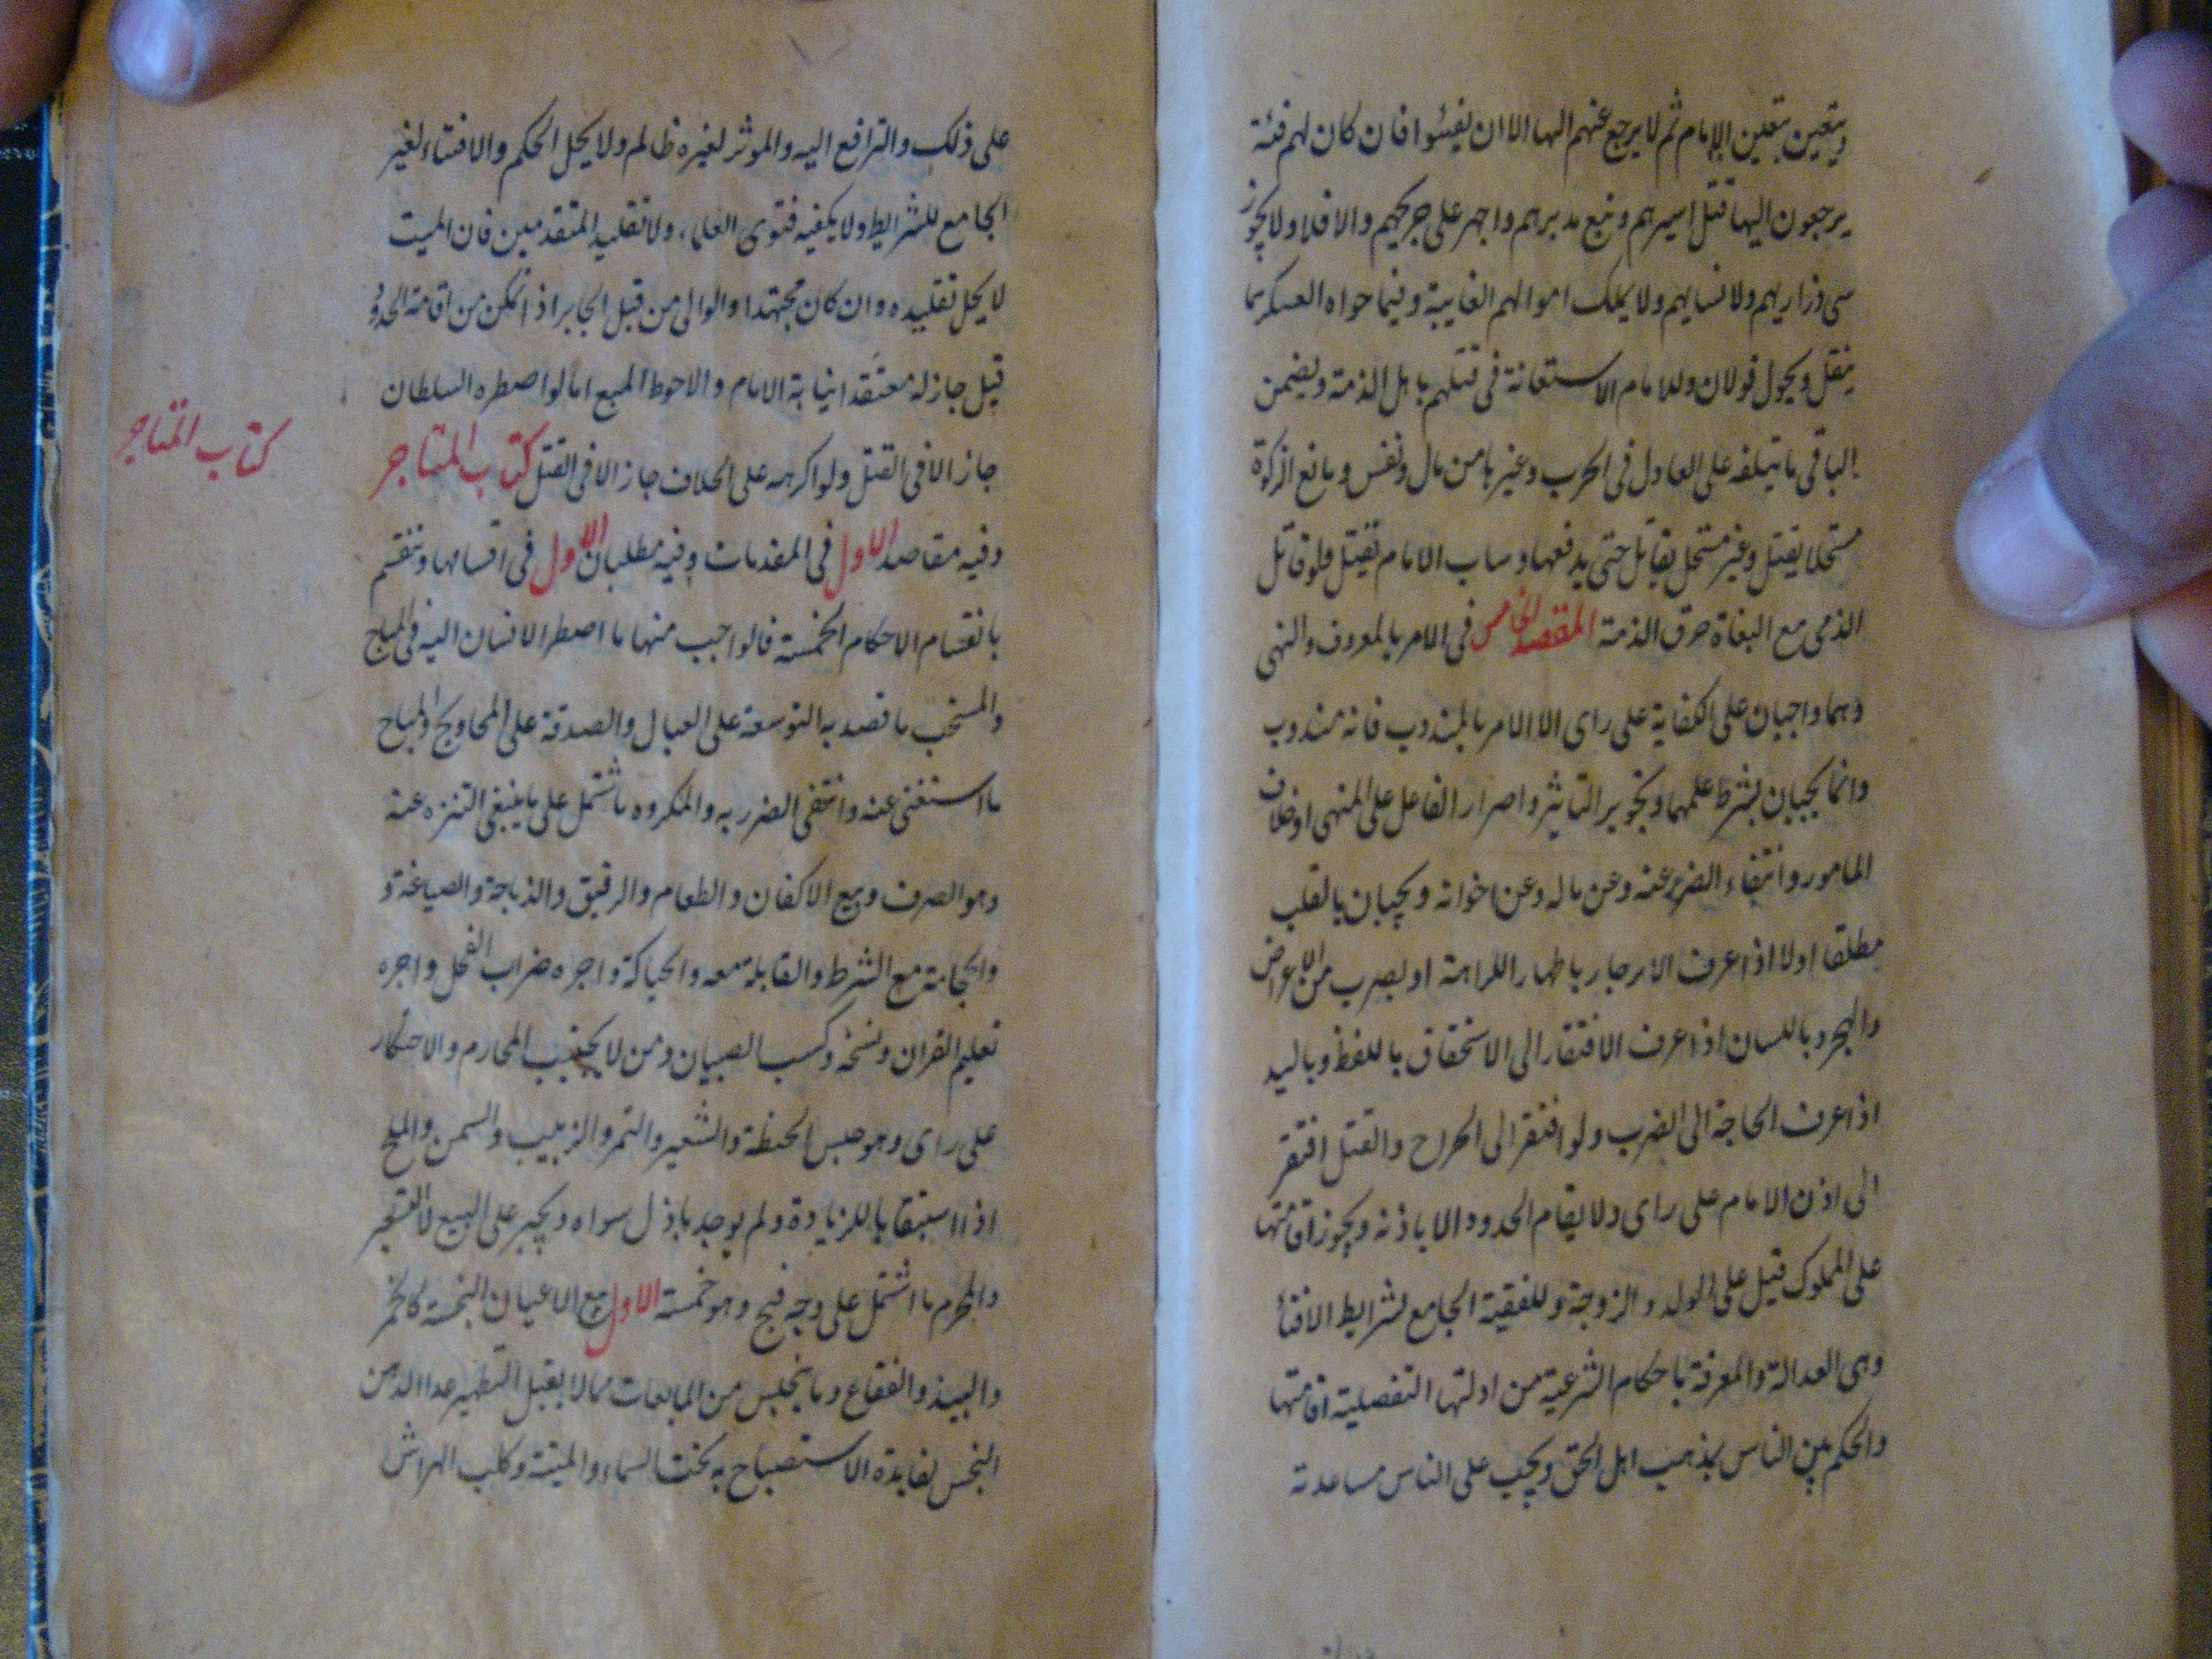 ويتعين بتعين الامام ثم لا يرجع عنهم الها الا ان يفيئوا فان كان لهم فئة
يرجعون اليها قتل اسيرهم وتبع مدبرهم واجهز على جريحهم والا فلا ولا يجوز
سبى ذراريهم ولا نسايهم ولا يملك اموالهم الغايبة وفيما حواه العسكر مما
ينقل ويحول قولان وللامام الاستعانة فى قتلهم باهل الذمة ويضمن
الباقى ما يتلفه على العادل فى الحرب وغيرها من مال ونفس ومانع الزكوة
مستحلا يقتل وغير مستحل يقاتل حتى يدفعها وساب الامام يقتل فلو قاتل
الذمى مع البغاة خرق الذمة المقصد الخامس فى الامر بالمعروف والنهى
وهما واجبان على الكفاية على راى الا الامر بالمندوب فانه مندوب
وانما يجبان بشرط علمهما وتجويز التاثير واصرار الفاعل على المنهى او خلاف
المامور وانتفاء الضرر عنه وعن ماله وعن اخوانه ويجبان بالقلب
مطلقا اولا اذا عرف الانزجار باظهار الكراهة او بضرب من الاعراض
والهجر وباللسان اذا عرف الافتقار الى الاستخفاف باللفظ وباليد
اذا عرف الحاجة الى الضرب ولو افتقر الى الجراح والقتل افتقر
الى اذن الامام على راى ولا يقام الحدود الا باذنه ويجوز اقامتها
على المملوك قيل على الولد والزوجة وللفقيه الجامع لشرايط الافتا
وهى العدالة والمعرفة باحكام الشرعية من ادلتها التفصيلية اقامتها
والحكم بين الناس بمذهب اهل الحق ويجب على الناس مساعدته
على ذلك والترافع اليه والموثر لغيره ظالم ولا يحل الحكم والافتاء لغير
الجامع للشرايط ولا يكفيه فتوى العلماء ولا تقليد المتقدمين فان الميت
لا يحل تقليده وان كان مجتهدا والوالى من قبل الجابر اذا تمكن من اقامة الحدود
قيل جاز له معتقدا نيابة الامام والاحوط المنع اما لو اضطره السلطان
جاز الا فى القتل ولو اكرهه على الخلاف جاز الا فى القتل كتاب المتاجر
كتاب المتاجر
وفيه مقاصد الاول فى المقدمات وفيه مطلبان الاول فى اقسامها وتنقسم
بانقسام الاحكام الخمسة فالواجب منها ما اضطر الانسان اليه فى المباح
والمستحب ما قصد به التوسعة على العيال والصدقة على المحاويج والمباح
ما استغنى عنه وانتفى الضرر به والمكروه ما اشتمل على ما ينبغى التنزه عنه
وهو الصرف وبيع الاكفان والطعام والرقيق والذباحة والصياغة و
والحجامة مع الشرط والقابلة معه والحياكة واجره ضراب الفحل واجره
تعليم القران ونسخه وكسب الصبيان ومن لا يجتنب المحارم والاحتكار
على راى وهو حبس الحنطة والشعير والتمر والزبيب والسمن والملح
اذا استبقاها للزيادة ولم يوجد باذل سواه ويجبر على البيع لا التسعير
والمحرم ما اشتمل على وجه قبح وهو خمسة الاول بيع الاعيان النجسة كالخمر
والنبيذ والفقاع وما ينجس من المايعات مما لا يقبل التطهير عدا الدهن
النجس لفايدة الاستصباح به تحت السماء والميتة وكلب الهراش